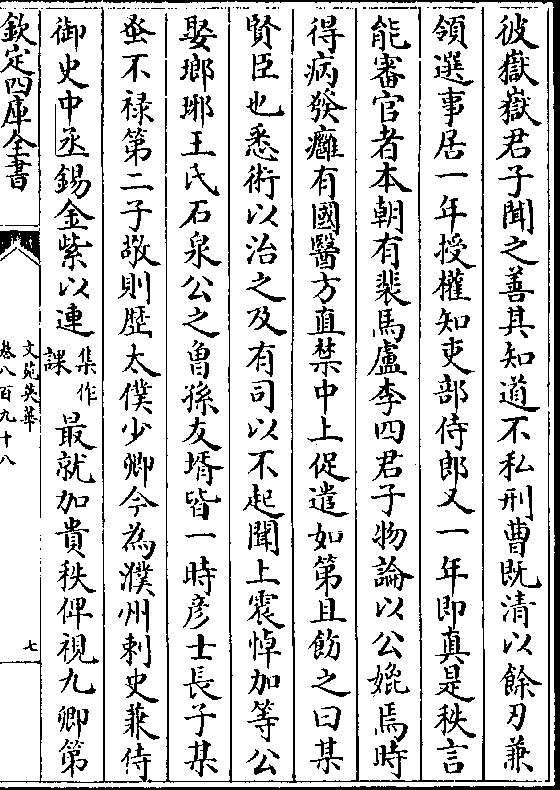 彼嶽嶽君子聞之善其知道不私刑曹既清以餘刃兼
領選事居一年授權知吏部侍郎又一年即真是秩言
能審官者本朝有裴馬盧李四君子物論以公媲焉時
得病發癰有國醫方直禁中上促遣如第且飭之曰某
賢臣也悉術以治之及有司以不起聞上震悼加等公
娶瑯琊王氏石泉公之曾孫友壻皆一時彥士長子某
蚤不祿第二子敬則歷太僕少卿今為濮州刺史兼侍
御史中丞錫金紫以連集作課最就加貴秩俾視九卿第
欽定四庫全書
文苑英華
卷八百九十八
七